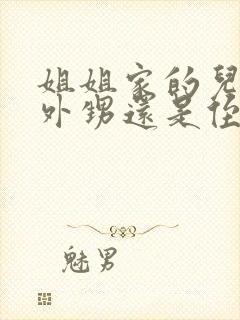 姐姐家的兒
外甥還是侄
魅男